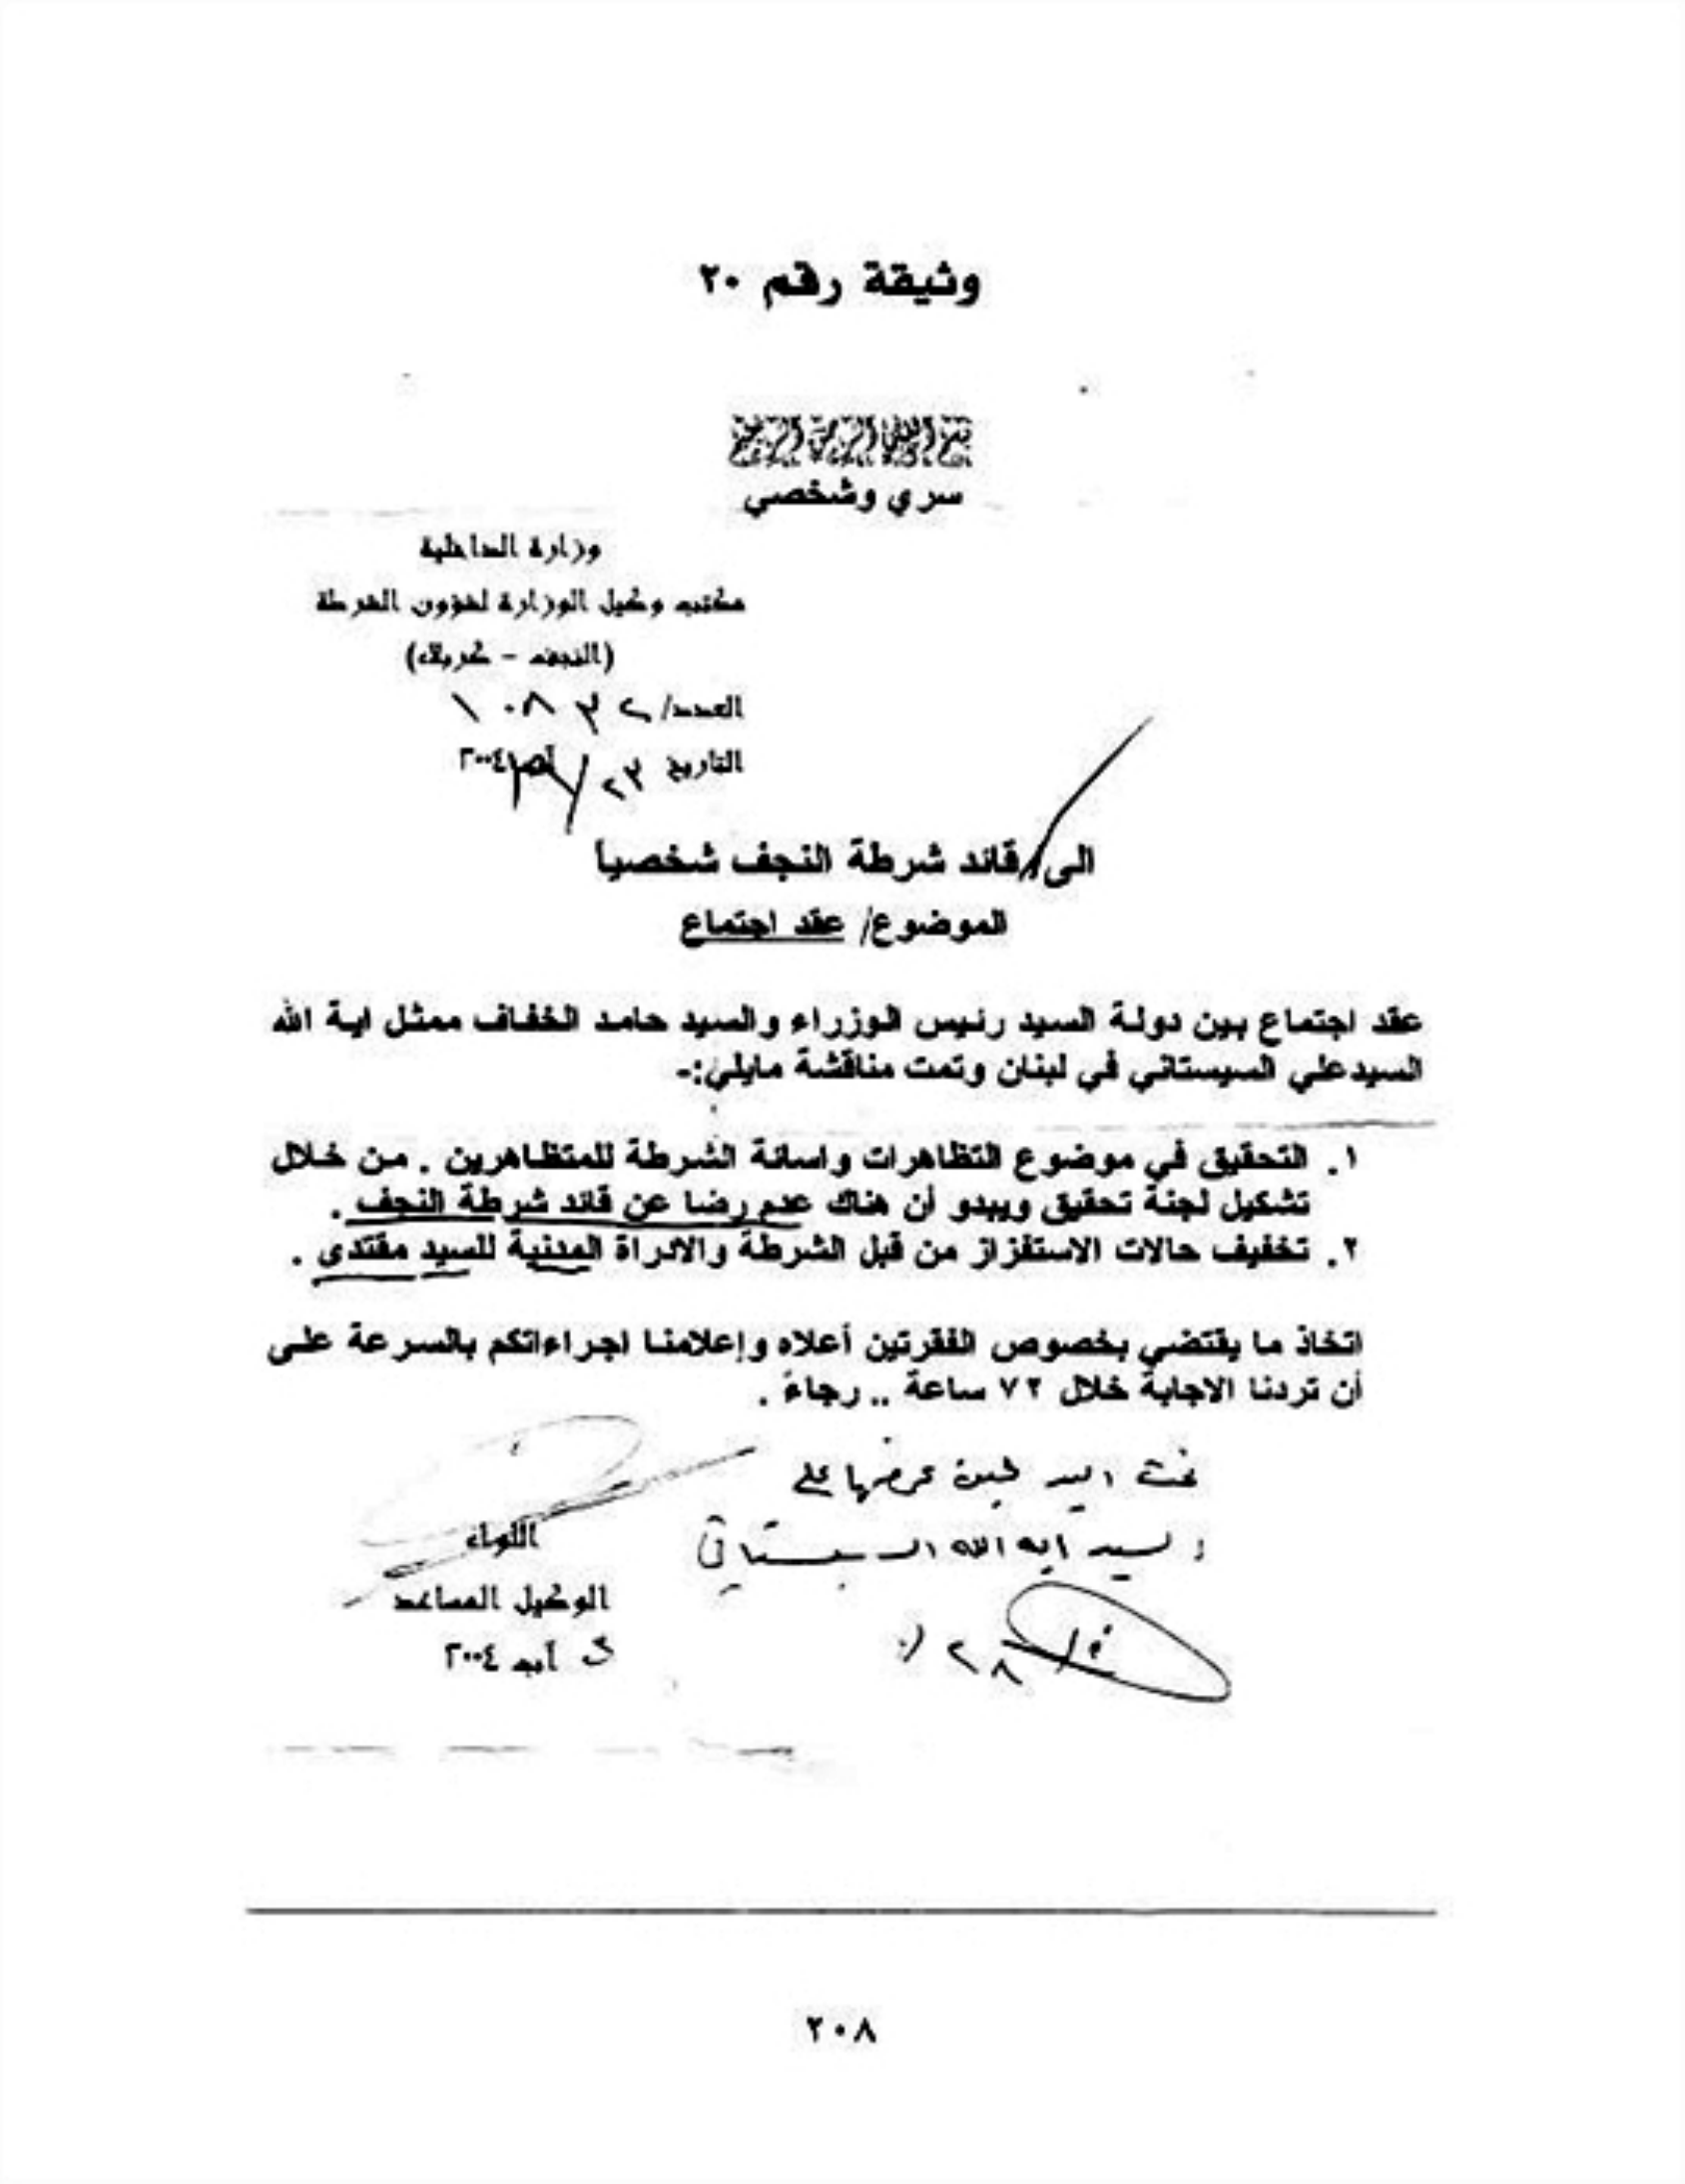 وثيقة رقم ٢٠
بسم الله الرحمن الرحيم
سري وشخصي
وزارة الداخلية
مكتب وكيل الوزارة لشؤون الشرطة
(النجف - كربلاء)
العدد/
التاريخ ٢٣/ ٢٠٠٤
الى/ قائد شرطة النجف شخصياً
الموضوع/ عقد اجتماع
عقد اجتماع بين دولة السيد رئيس الوزراء والسيد حامد الخفاف ممثل اية الله
السيدعلي السيستاني في لبنان وتمت مناقشة مايلي:-
١. التحقيق في موضوع التظاهرات واسائة الشرطة للمتظاهرين . من خلال
تشكيل لجنة تحقيق ويبدو أن هناك عدم رضا عن قائد شرطة النجف .
٢. تخفيف حالات الاستفزاز من قبل الشرطة والادراة المدنية للسيد مقتدى .
اتخاذ ما يقتضي بخصوص الفقرتين أعلاه وإعلامنا اجراءاتكم بالسرعة على
أن تردنا الاجابة خلال ٧٢ ساعة .. رجاءً .
تحت اليد لحين عرضها على
السيد ايه الله السيستاني
اللواء
الوكيل المساعد
آب ٢٠٠٤
٢٠٨